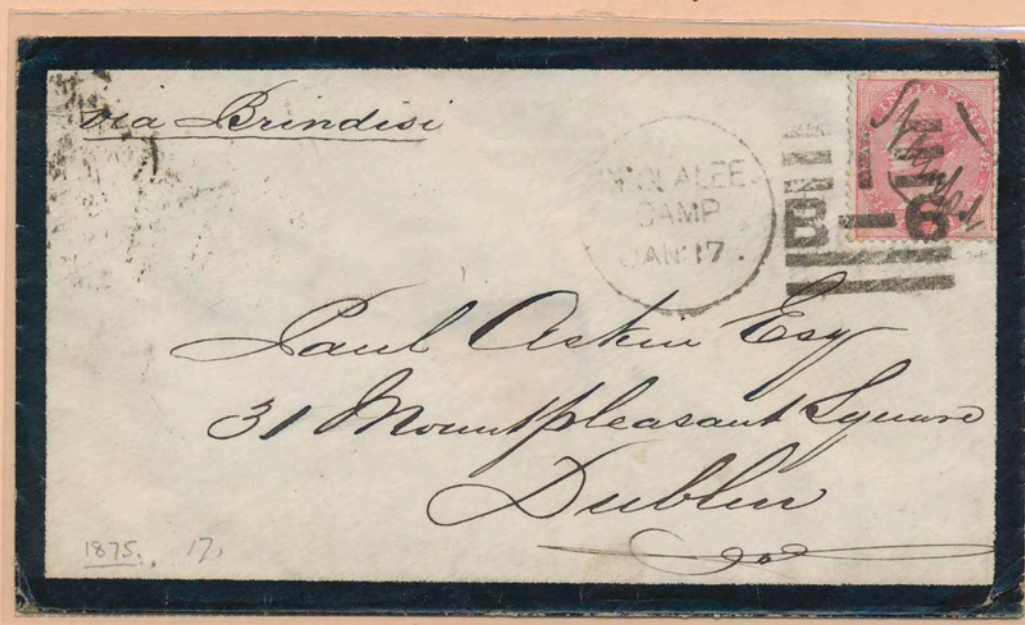 via Brindisi
ALEE.
CAMP
JAN 17.
INDIA POSTAGE
B-6
Paul Askin Esq
31 Mountpleasant Square
Dublin
1875. 17.